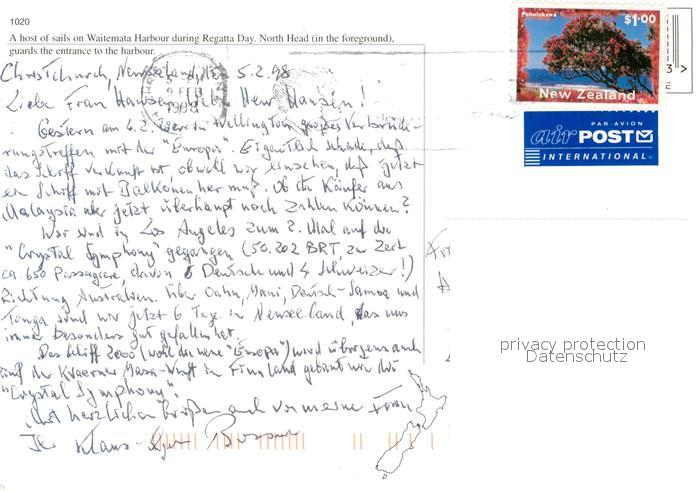 1020
A host of sails on Waitemata Harbour during Regatta Day. North Head (in the foreground),
guards the entrance to the harbour.
Pohutukawa
$1.00
New Zealand
PAR AVION
air POST
INTERNATIONAL
Christchurch, Neuseeland, den 5.2.98
Liebe Frau Hansen, lieber Herr Hansen!
Gestern am 4.2. war in Wellington großes Verbrüde-
rungstreffen mit der "Europa". Eigentlich schade, daß
das Schiff verkauft ist, obwohl wir einsehen, daß jetzt
ein Schiff mit Balkonen her muß. Ob die Käufer aus
Malaysia aber jetzt überhaupt noch zahlen können?
Wir sind in Los Angeles zum 2. Mal auf die
"Crystal Symphony" gegangen (50.202 BRT, zur Zeit
ca. 650 Passagiere, davon 5 Deutsche und 4 Schweizer!)
Richtung Australien. Über Oahu, Maui, Deutsch-Samoa und
Tonga sind wir jetzt 6 Tage in Neuseeland, das uns
immer besonders gut gefallen hat.
Das Schiff 2000 (wohl die neue "Europa") wird übrigens auch
auf der Kvaerner Masa-Werft in Finnland gebaut wie die
"Crystal Symphony".
Mit herzlichen Grüßen auch von meiner Frau
Ihr Klaus
privacy protection
Datenschutz